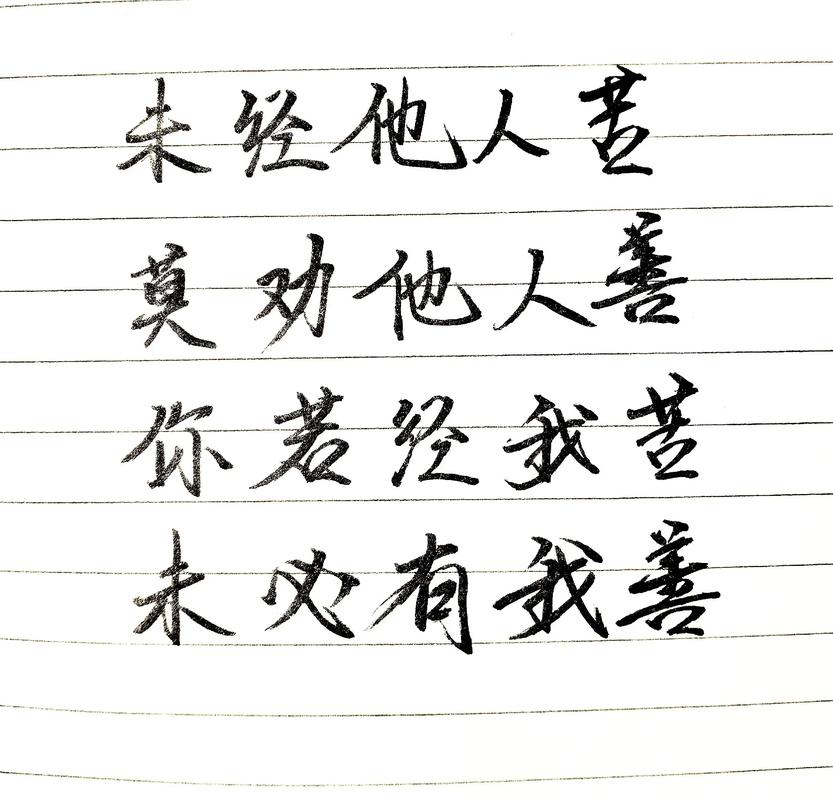 未经他人苦
莫劝他人善
你若经我苦
未必有我善